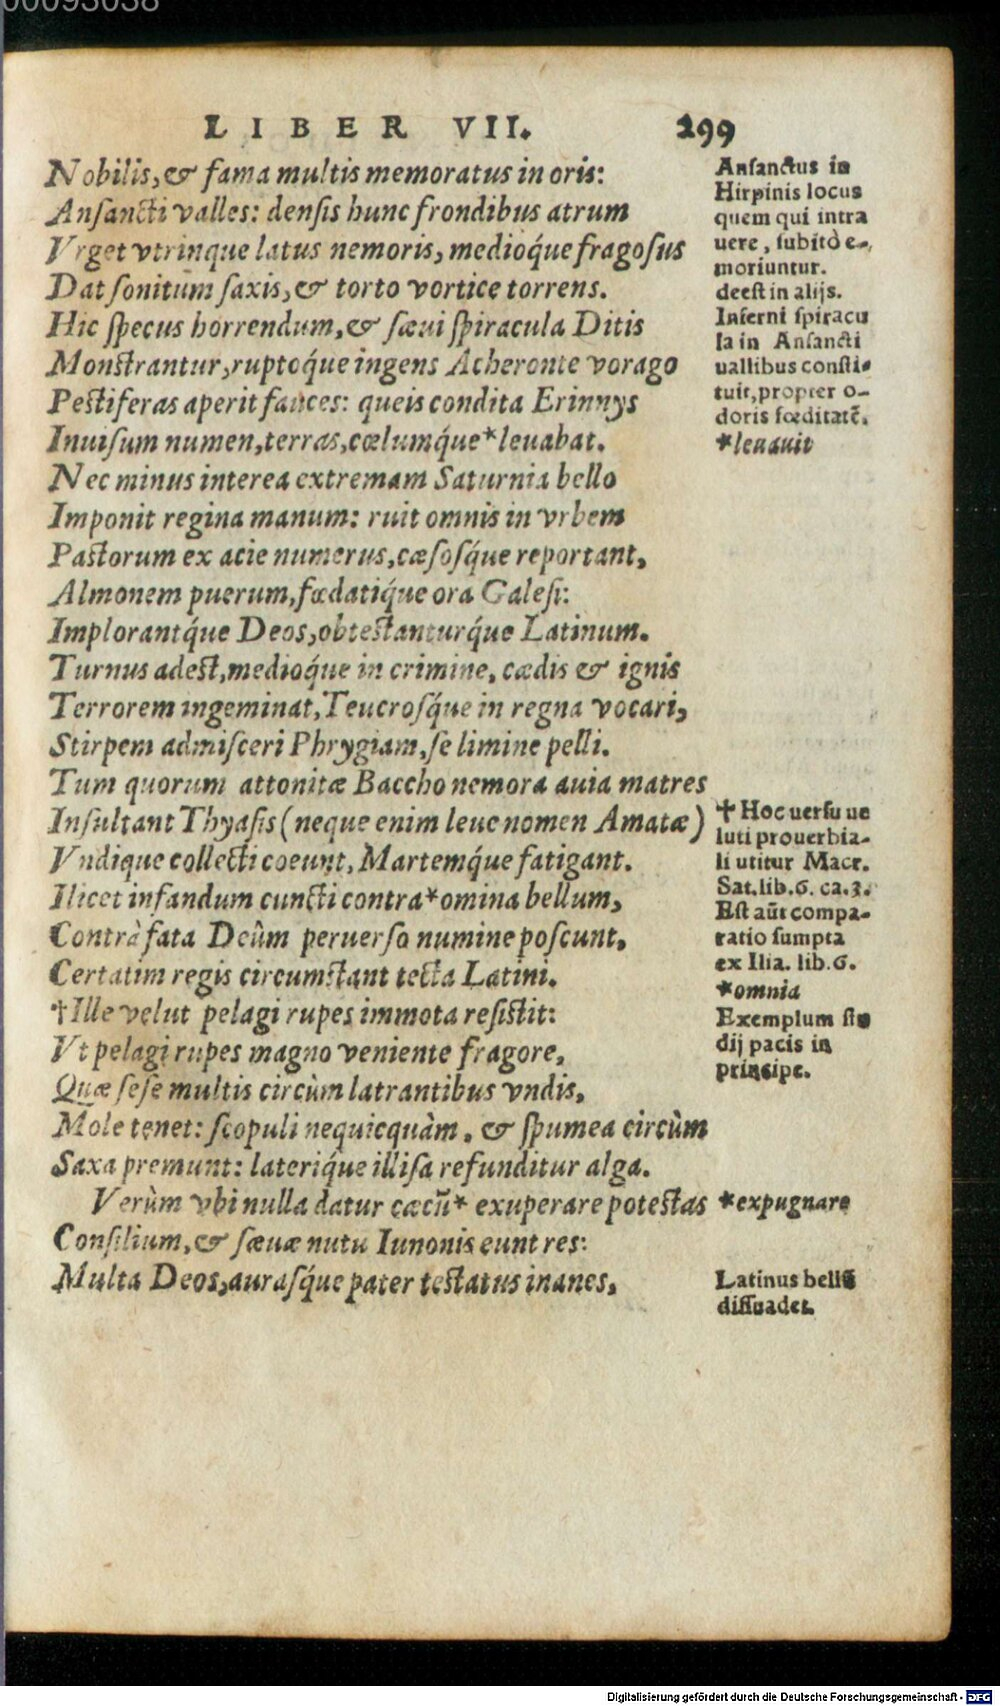 00093038
LIBER VII. 299
Nobilis, & fama multis memoratus in oris:
Ansancti valles: densis hunc frondibus atrum
Vrget vtrinque latus nemoris, medioq́ue fragosus
Dat sonitum saxis, & torto vortice torrens.
Hic specus horrendum, & sæui spiracula Ditis
Monstrantur, ruptoq́ue ingens Acheronte vorago
Pestiferas aperit fauces: queis condita Erinnys
Inuisum numen, terras, cœlumq́ue * leuabat.
Nec minus interea extremam Saturnia bello
Imponit regina manum: ruit omnis in vrbem
Pastorum ex acie numerus, cæsosq́ue reportant,
Almonem puerum, fœdatiq́ue ora Galesi:
Implorantq́ue Deos, obtestanturq́ue Latinum.
Turnus adest, medioq́ue in crimine, cædis & ignis
Terrorem ingeminat, Teucrosq́ue in regna vocari,
Stirpem admisceri Phrygiam, se limine pelli.
Tum quorum attonitæ Baccho nemora auia matres
Insultant Thyasis (neque enim leue nomen Amatæ)
Vndique collecti coeunt, Martemq́ue fatigant.
Ilicet infandum cuncti contra * omina bellum,
Contrà fata Deûm peruerso numine poscunt.
Certatim regis circumstant tecta Latini.
†Ille velut pelagi rupes immota resistit:
Vt pelagi rupes magno veniente fragore,
Quæ sese multis circùm latrantibus vndis,
Mole tenet: scopuli nequicquàm, & spumea circùm
Saxa premunt: lateriq́ue illisa refunditur alga.
Verùm vbi nulla datur cæcũ * exuperare potestas
Consilium, & sæuæ nutu Iunonis eunt res:
Multa Deos, aurasq́ue pater testatus inanes,
Ansanctus in
Hirpinis locus
quem qui intra
uere, subitò e-
moriuntur.
deest in alijs.
Inferni spiracu
la in Ansancti
uallibus consti-
tuit, propter o-
doris fœditatẽ.
*leuauit
† Hoc uersu ue
luti prouerbia-
li utitur Macr.
Sat. lib. 6. ca. 3.
Est aũt compa-
ratio sumpta
ex Ilia. lib. 6.
*omnia
Exemplum stu
dij pacis in
principe.
*expugnare
Latinus bellũ
dissuadet.
Digitalisierung gefördert durch die Deutsche Forschungsgemeinschaft - DFG